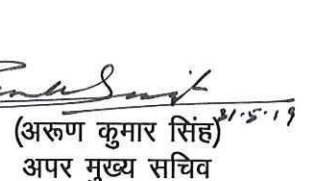 31-5-19
(अरूण कुमार सिंह)
अपर मुख्य सचिव